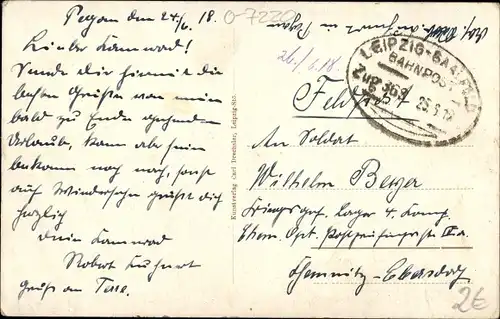 Pegau den 24/6. 18.
O-7220
Lieber Kamerad!
Sende dir hiermit die
besten Grüße von mein
bald zu Ende gehenden
Urlaub, kann aber sein
bekomm noch nach, sonst
auf Wiedersehn grüßt dich
herzlich
dein Kamerad
Robert Kuhnert
Gruß an
Kunstverlag Carl Breitfelder, Leipzig-Stö.
26./6.18.
LEIPZIG-SAALFELD
BAHNPOST
ZUG 369
25.6.18
Feldpost
An Soldat
Wilhelm Berger
Kriegsgef. Lager 4. Komp.
Chemnitz-Ebersdorf
2€